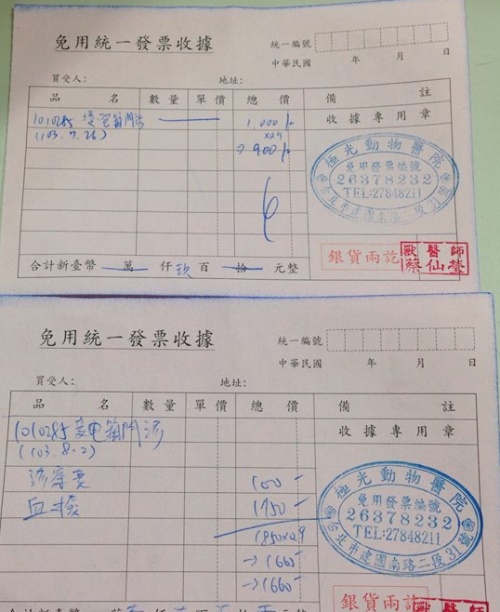 免用統一發票收據
統一編號
中華民國 年 月 日
買受人: 地址:
品 名 數量 單價 總 價 備 註
收據專用章
1010285 電箱門診 1,000/-
(103.7.26) x0.9
→900/-
極光動物醫院
免用發票編號
26378232
TEL:27848211
台北市建國南路二段31號
銀貨兩訖
獸醫師
蔡仙瑩
合計新臺幣 萬 仟 玖 百 拾 元整
免用統一發票收據
統一編號
中華民國 年 月 日
買受人: 地址:
品 名 數量 單價 總 價 備 註
收據專用章
1010285 電箱門診
(103.8.2)
診察費 100-
血檢 1750-
1850x0.9
→1665-
→1665-
極光動物醫院
免用發票編號
26378232
TEL:27848211
台北市建國南路二段31號
銀貨兩訖
獸醫師